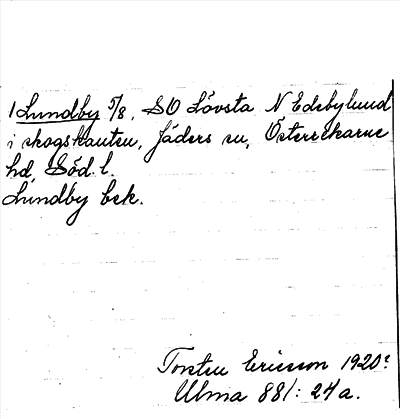 1 Lundby 5/8, SO Lövsta N Edebylund
i skogskanten, Jäders sn, Österrekarne
hd, Söd. l.
Lundby bek.
Torsten Ericson 1920?
Ulma 881: 24 a.